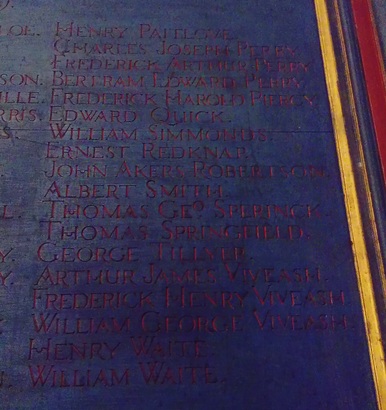 OE. HENRY PAITLOVE.
CHARLES JOSEPH PERRY.
FREDERICK ARTHUR PERRY.
SON. BERTRAM EDWARD PERRY.
ILLE. FREDERICK HAROLD PIERCY.
RRIS. EDWARD QUICK.
S. WILLIAM SIMMONDS.
ERNEST REDKNAP.
JOHN AKERS ROBERTSON.
ALBERT SMITH.
L. THOMAS GEO
THOMAS SPRINGFIELD.
Y. GEORGE TILLYER.
Y. ARTHUR JAMES VIVEASH.
FREDERICK HENRY VIVEASH.
WILLIAM GEORGE VIVEASH.
HENRY WAITE.
WILLIAM WAITE.